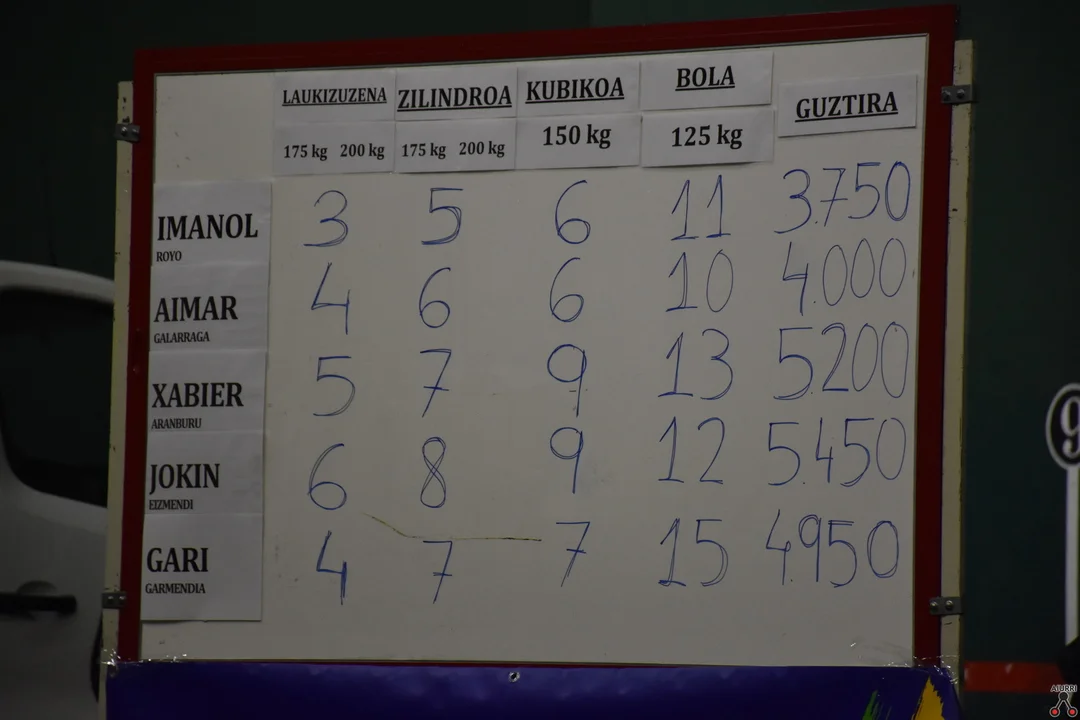 LAUKIZUZENA ZILINDROA KUBIKOA BOLA GUZTIRA
175 kg 200 kg 175 kg 200 kg 150 kg 125 kg
IMANOL 3 5 6 11 3.750
ROYO
AIMAR 4 6 6 10 4.000
GALARRAGA
XABIER 5 7 9 13 5.200
ARANBURU
JOKIN 6 8 9 12 5.450
EIZMENDI
GARI 4 7 7 15 4.950
GARMENDIA
9
AIURRI